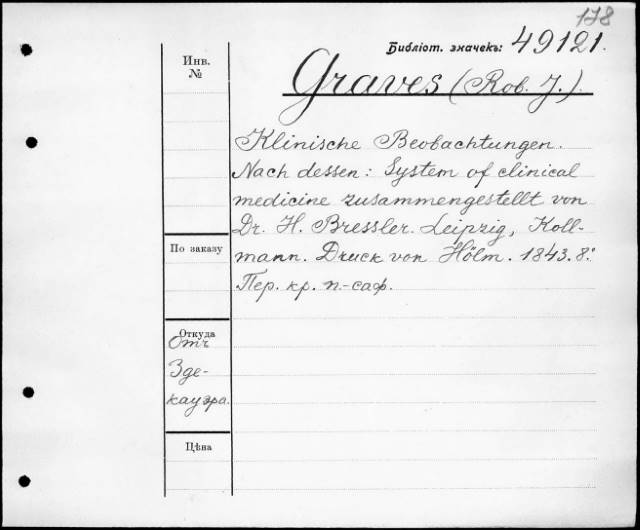 178
Библіот. значекъ: 49121.
Инв.
№
Graves (Rob. J.).
Klinische Beobachtungen.
Nach dessen: System of clinical
medicine zusammengestellt von
Dr. H. Bressler. Leipzig, Koll-
mann. Druck von Hölm. 1843. 8:
Пер. кр. п-саф.
По заказу
Откуда
Отъ
Зде-
кауэра.
Цѣна